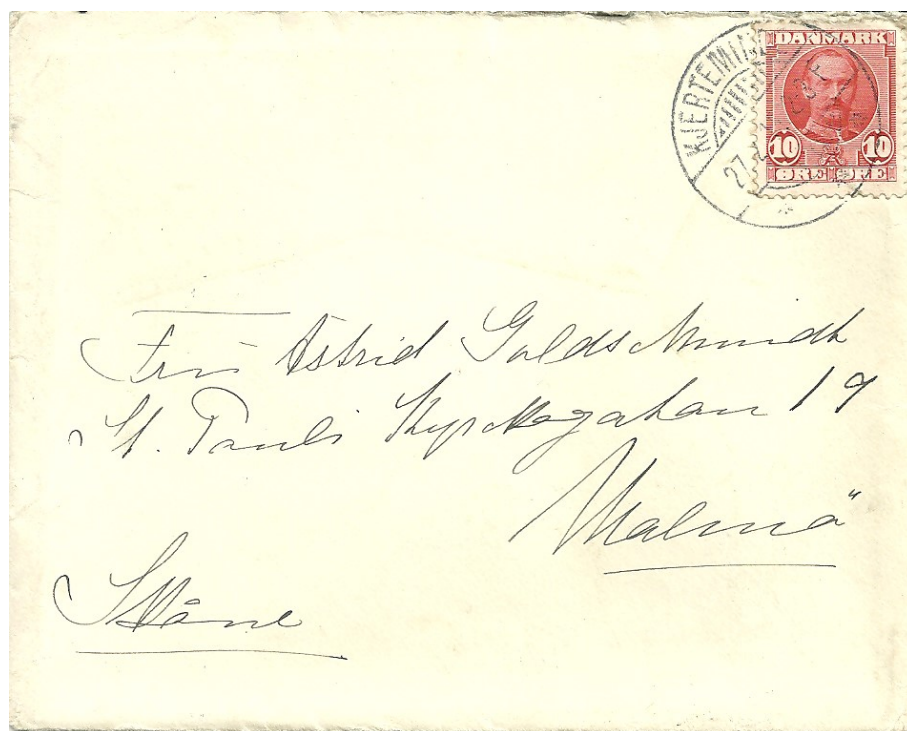 KJERTEMI
27
DANMARK
10 10
ØRE ØRE
Fru Astrid Goldschmidt
St. Pauli Kyrkogatan 19
Malmö
Skåne